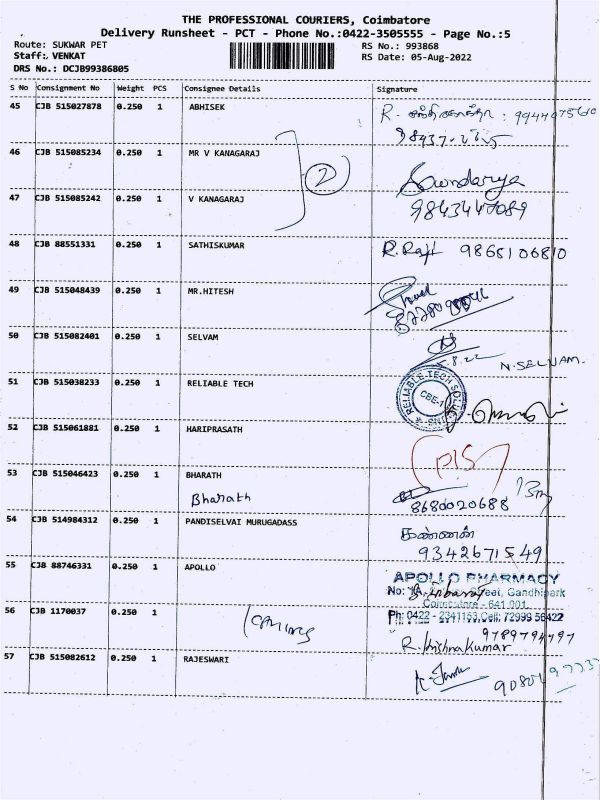 THE PROFESSIONAL COURIERS, Coimbatore
Delivery Runsheet - PCT - Phone No.:0422-3505555 - Page No.:5
Route: SUKWAR PET
RS No.: 993868
Staff: VENKAT
RS Date: 05-Aug-2022
DRS No.: DCJB99386805
S No Consignment No Weight PCS Consignee Details Signature
45 CJB 515027878 0.250 1 ABHISEK R.
46 CJB 515085234 0.250 1 MR V KANAGARAJ
2
Soundarya
47 CJB 515085242 0.250 1 V KANAGARAJ 9843447089
48 CJB 88551331 0.250 1 SATHISKUMAR R. Raji 9865106810
49 CJB 515048439 0.250 1 MR.HITESH
50 CJB 515082401 0.250 1 SELVAM
5.8.22 N. SELVAM.
51 CJB 515038233 0.250 1 RELIABLE TECH
RELIABLE TECH SOLUTIONS
CBE-1
52 CJB 515061881 0.250 1 HARIPRASATH
53 CJB 515046423 0.250 1 BHARATH
Bharath 8680020688
54 CJB 514984312 0.250 1 PANDISELVAI MURUGADASS கண்ணன்
9342671549
55 CJB 88746331 0.250 1 APOLLO APOLLO PHARMACY
No: Street, Gandhipark
Coimbatore - 641 001.
56 CJB 1170037 0.250 1 Ph: 0422 - 2341153, Cell: 72999 56422
R. Krishnakumar
57 CJB 515082612 0.250 1 RAJESWARI